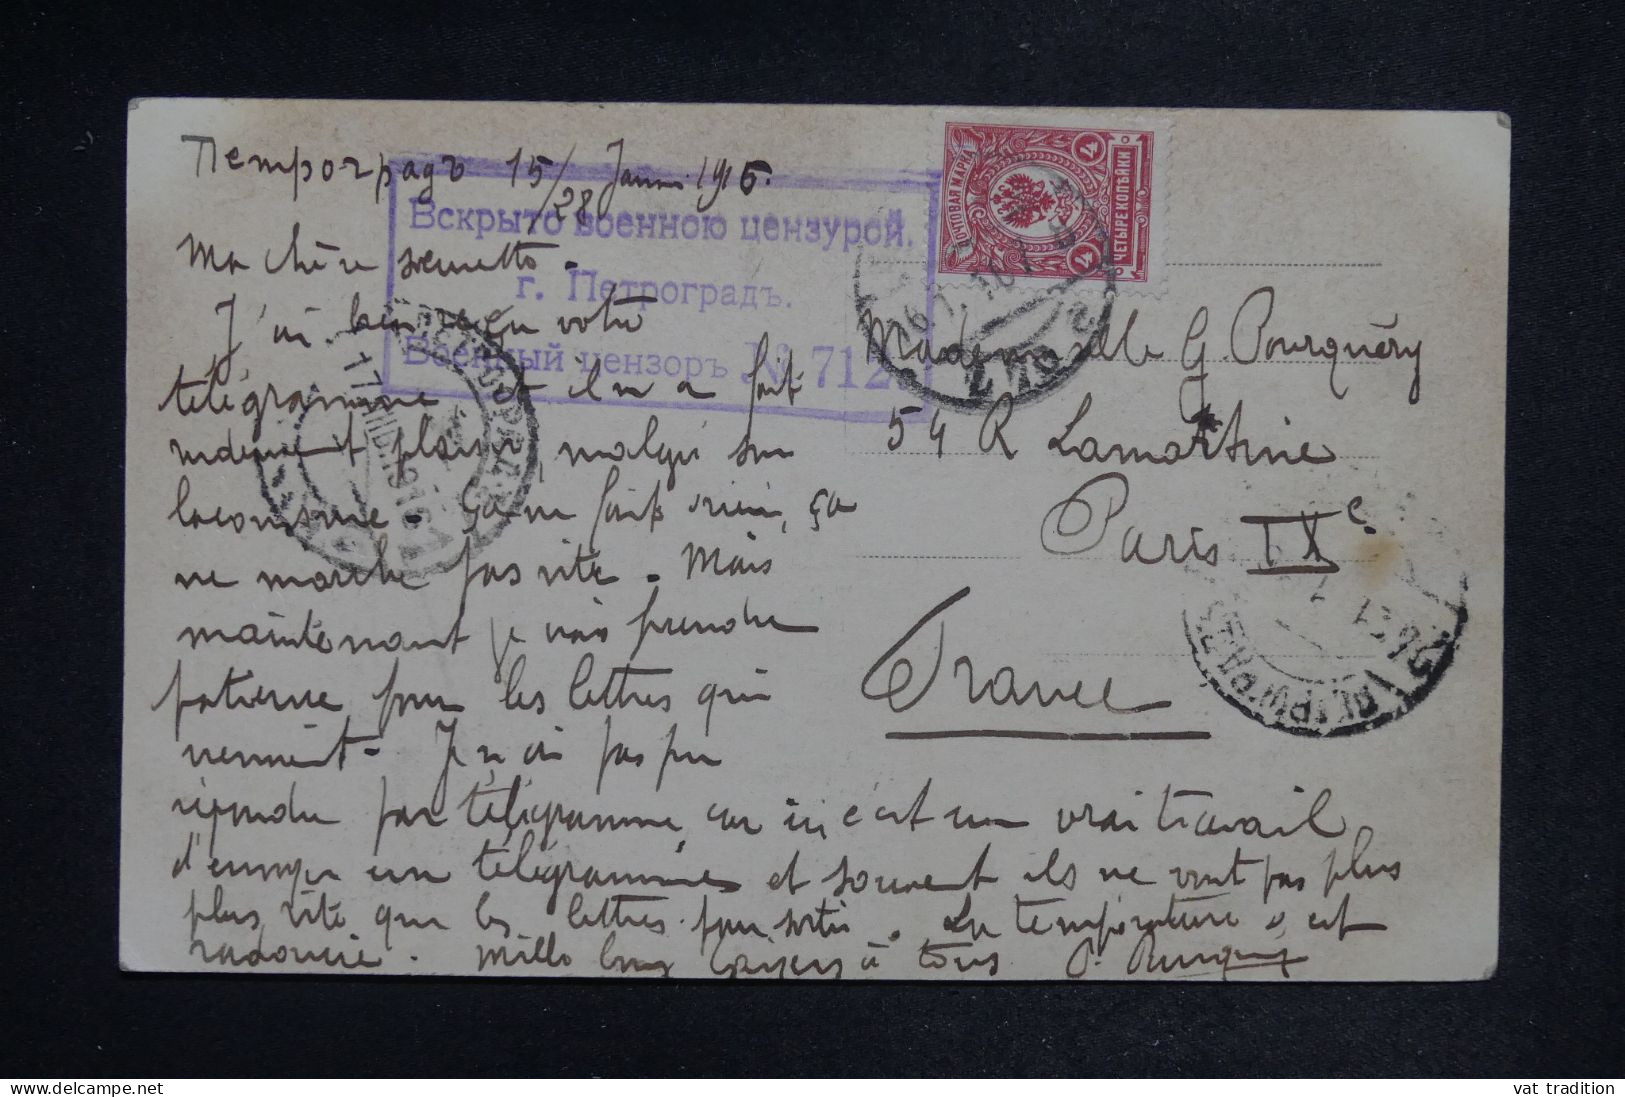 Петроградъ 15/28 Janv. 1916.
Ma chère soeurette.
J'ai bien reçu votre
télégramme et il m'a fait
rudement plaisir, malgré son
laconisme. Ça ne fait rien, ça
ne marche pas vite. Mais
maintenant je vais prendre
patience pour les lettres qui
viennent. Je n'ai pas pu
répondre par télégramme, car ici c'est un vrai travail
d'envoyer un télégramme et souvent ils ne vont pas plus
plus vite que les lettres pour sortir. La température s'est
radoucie. Mille bons baisers à tous
Вскрыто военною цензурой.
г. Петроградъ.
Военный цензоръ № 712
ПОЧТОВАЯ МАРКА
4 4
1 1
ЧЕТЫРЕ КОПѢЙКИ
Mademoiselle G. Pourquéry
54 R Lamartine
Paris IXe
France
vat tradition